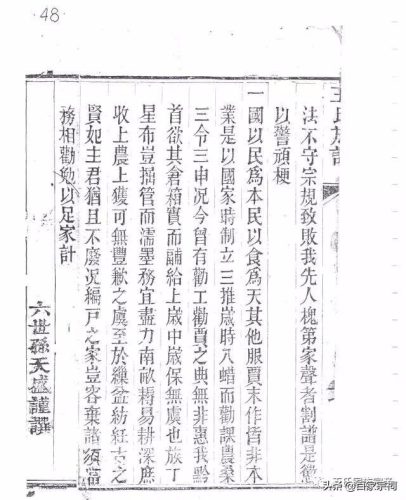 48
王氏族譜
法不守宗規致敗我先人槐第家聲者割譜是懲
以警頑梗
一國以民爲本民以食爲天其他服賈末作皆非本
業是以國家時制立三推嵗時八蜡而勸課農桑
三令三申况今曾有勸工勸賈之典無非惠我黔
首欲其倉箱實而餔給上嵗中嵗保無虞也族丁
星布豈搦管而濡墨務宜盡力南畝耨易耕深庶
收上農上獲可無豐歉之虞至於繅盆紡紅古之
賢妃主君猶且不廢况編戶之家豈容棄諸須當
務相勸勉以足家計
六世孫天盛謹譔
头条 @百家宗祠